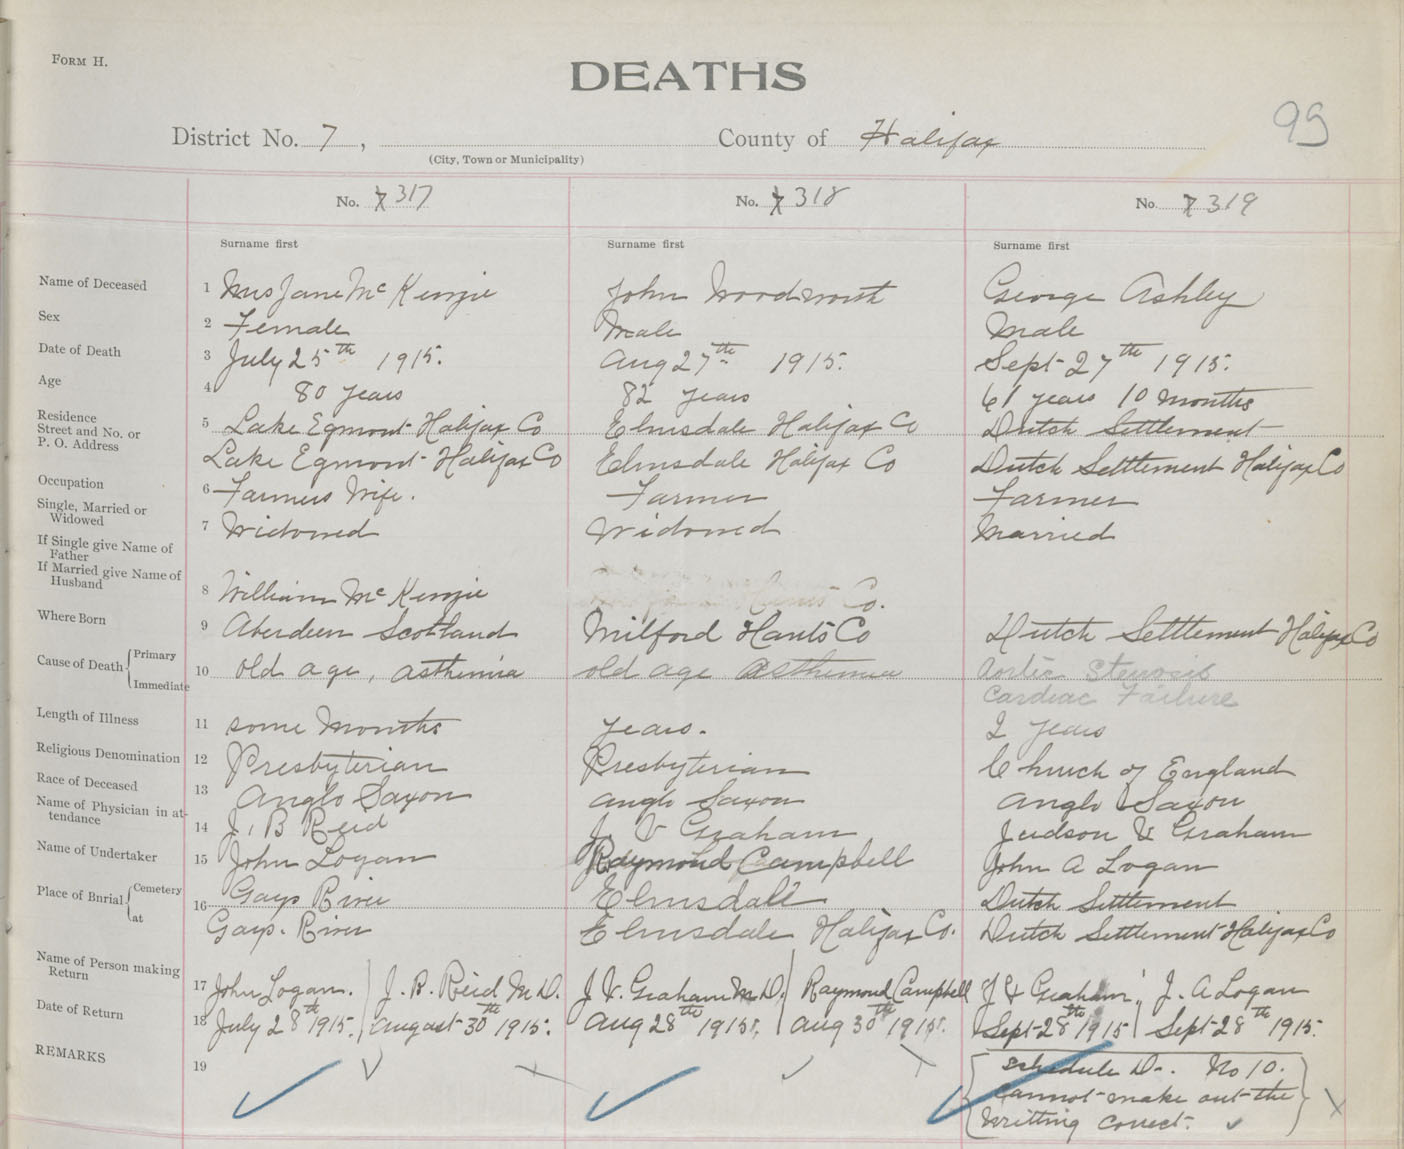 FORM H.
DEATHS
99
District No. 7, County of Halifax
(City, Town or Municipality)
No. 7 317 No. 7 318 No. 7 319
Surname first Surname first Surname first
Name of Deceased 1 Mrs Jane McKenzie John Woodworth George Ashley
Sex 2 Female Male Male
Date of Death 3 July 25th 1915. Aug 27th 1915. Sept 27th 1915.
Age 4 80 years 82 years 61 years 10 months
Residence
Street and No. or 5 Lake Egmont Halifax Co Elmsdale Halifax Co Dutch Settlement
P. O. Address Lake Egmont Halifax Co Elmsdale Halifax Co Dutch Settlement Halifax Co
Occupation 6 Farmers Wife. Farmer Farmer
Single, Married or
Widowed 7 Widowed Widowed Married
If Single give Name of
Father
If Married give Name of
Husband 8 William McKenzie Co.
Where Born 9 Aberdeen Scotland Milford Hants Co Dutch Settlement Halifax Co
Cause of Death Primary
10 old age, asthenia old age asthenia Aortic Stenosis
Immediate Cardiac Failure
Length of Illness 11 some months years. 2 years
Religious Denomination 12 Presbyterian Presbyterian Church of England
Race of Deceased 13 Anglo Saxon Anglo Saxon Anglo Saxon
Name of Physician in at-
tendance 14 J. B Reid J. V Graham Judson V Graham
Name of Undertaker 15 John Logan Raymond Campbell John A Logan
Place of Burial Cemetery 16 Gays River Elmsdale Dutch Settlement
at Gays. River Elmsdale Halifax Co. Dutch Settlement Halifax Co
Name of Person making
Return 17 John Logan. J. B. Reid M D. J V. Graham M.D. Raymond Campbell J V Graham J. A Logan
Date of Return 18 July 28th 1915. August 30th 1915. Aug 28th 1915. Aug 30th 1915. Sept 28th 1915 Sept 28th 1915.
REMARKS 19 schedule D. No 10.
cannot make out the
writting correct.